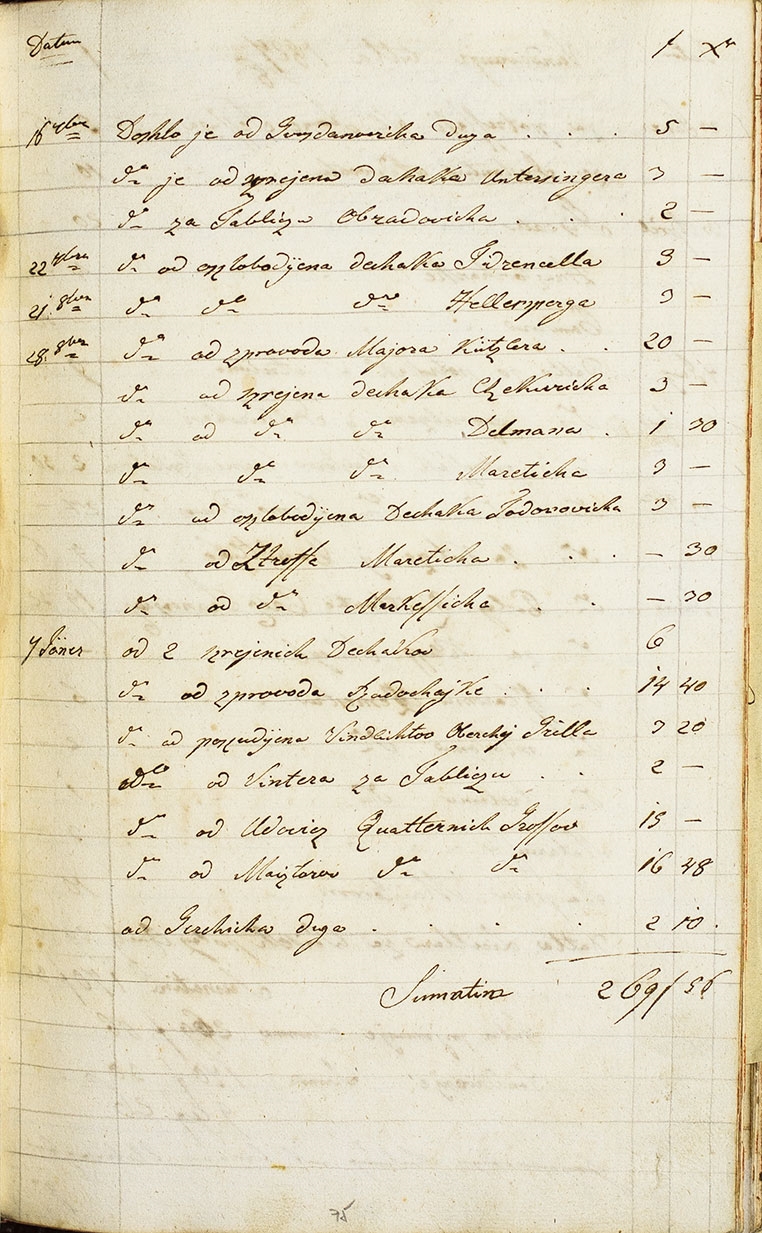 Datum f xr
16 7bra Doshlo je od Gvozdanovicha duga . . . 5 —
do je od zprejena dechaka Untersingera 3 —
do za Tabliczu Obradovicha . . . 2 —
22 7bra do od oszlobodjena dechaka Fidrencella 3 —
21. 8bra do do do Hellensperga 3 —
28. 8bra do od zprovoda Majora Kützlera . . 20 —
do od szprejena dechaka Chekuricha 3 —
do od do do Delmana . 1 30
do do do Mareticha 3 —
do od oszlobodjena Dechaka Todorovicha 3 —
do od Ztroffe Mareticha . . . — 30
do od do Markessicha . . — 30
7 Jäner od 2 szprejenich Dechakov 6
do od zprovoda . . . 14 40
do od poszudjena Vindlichtov Oberchej Grilla 3 20
do od Vintera za Tabliczu . . 2 —
do od Udovicz Quatternich Grossov 15 —
do od Maisztorov do do 16 48
od Gerchicha duga . . . . . 2 10.
Sumatim 269 f 56
75